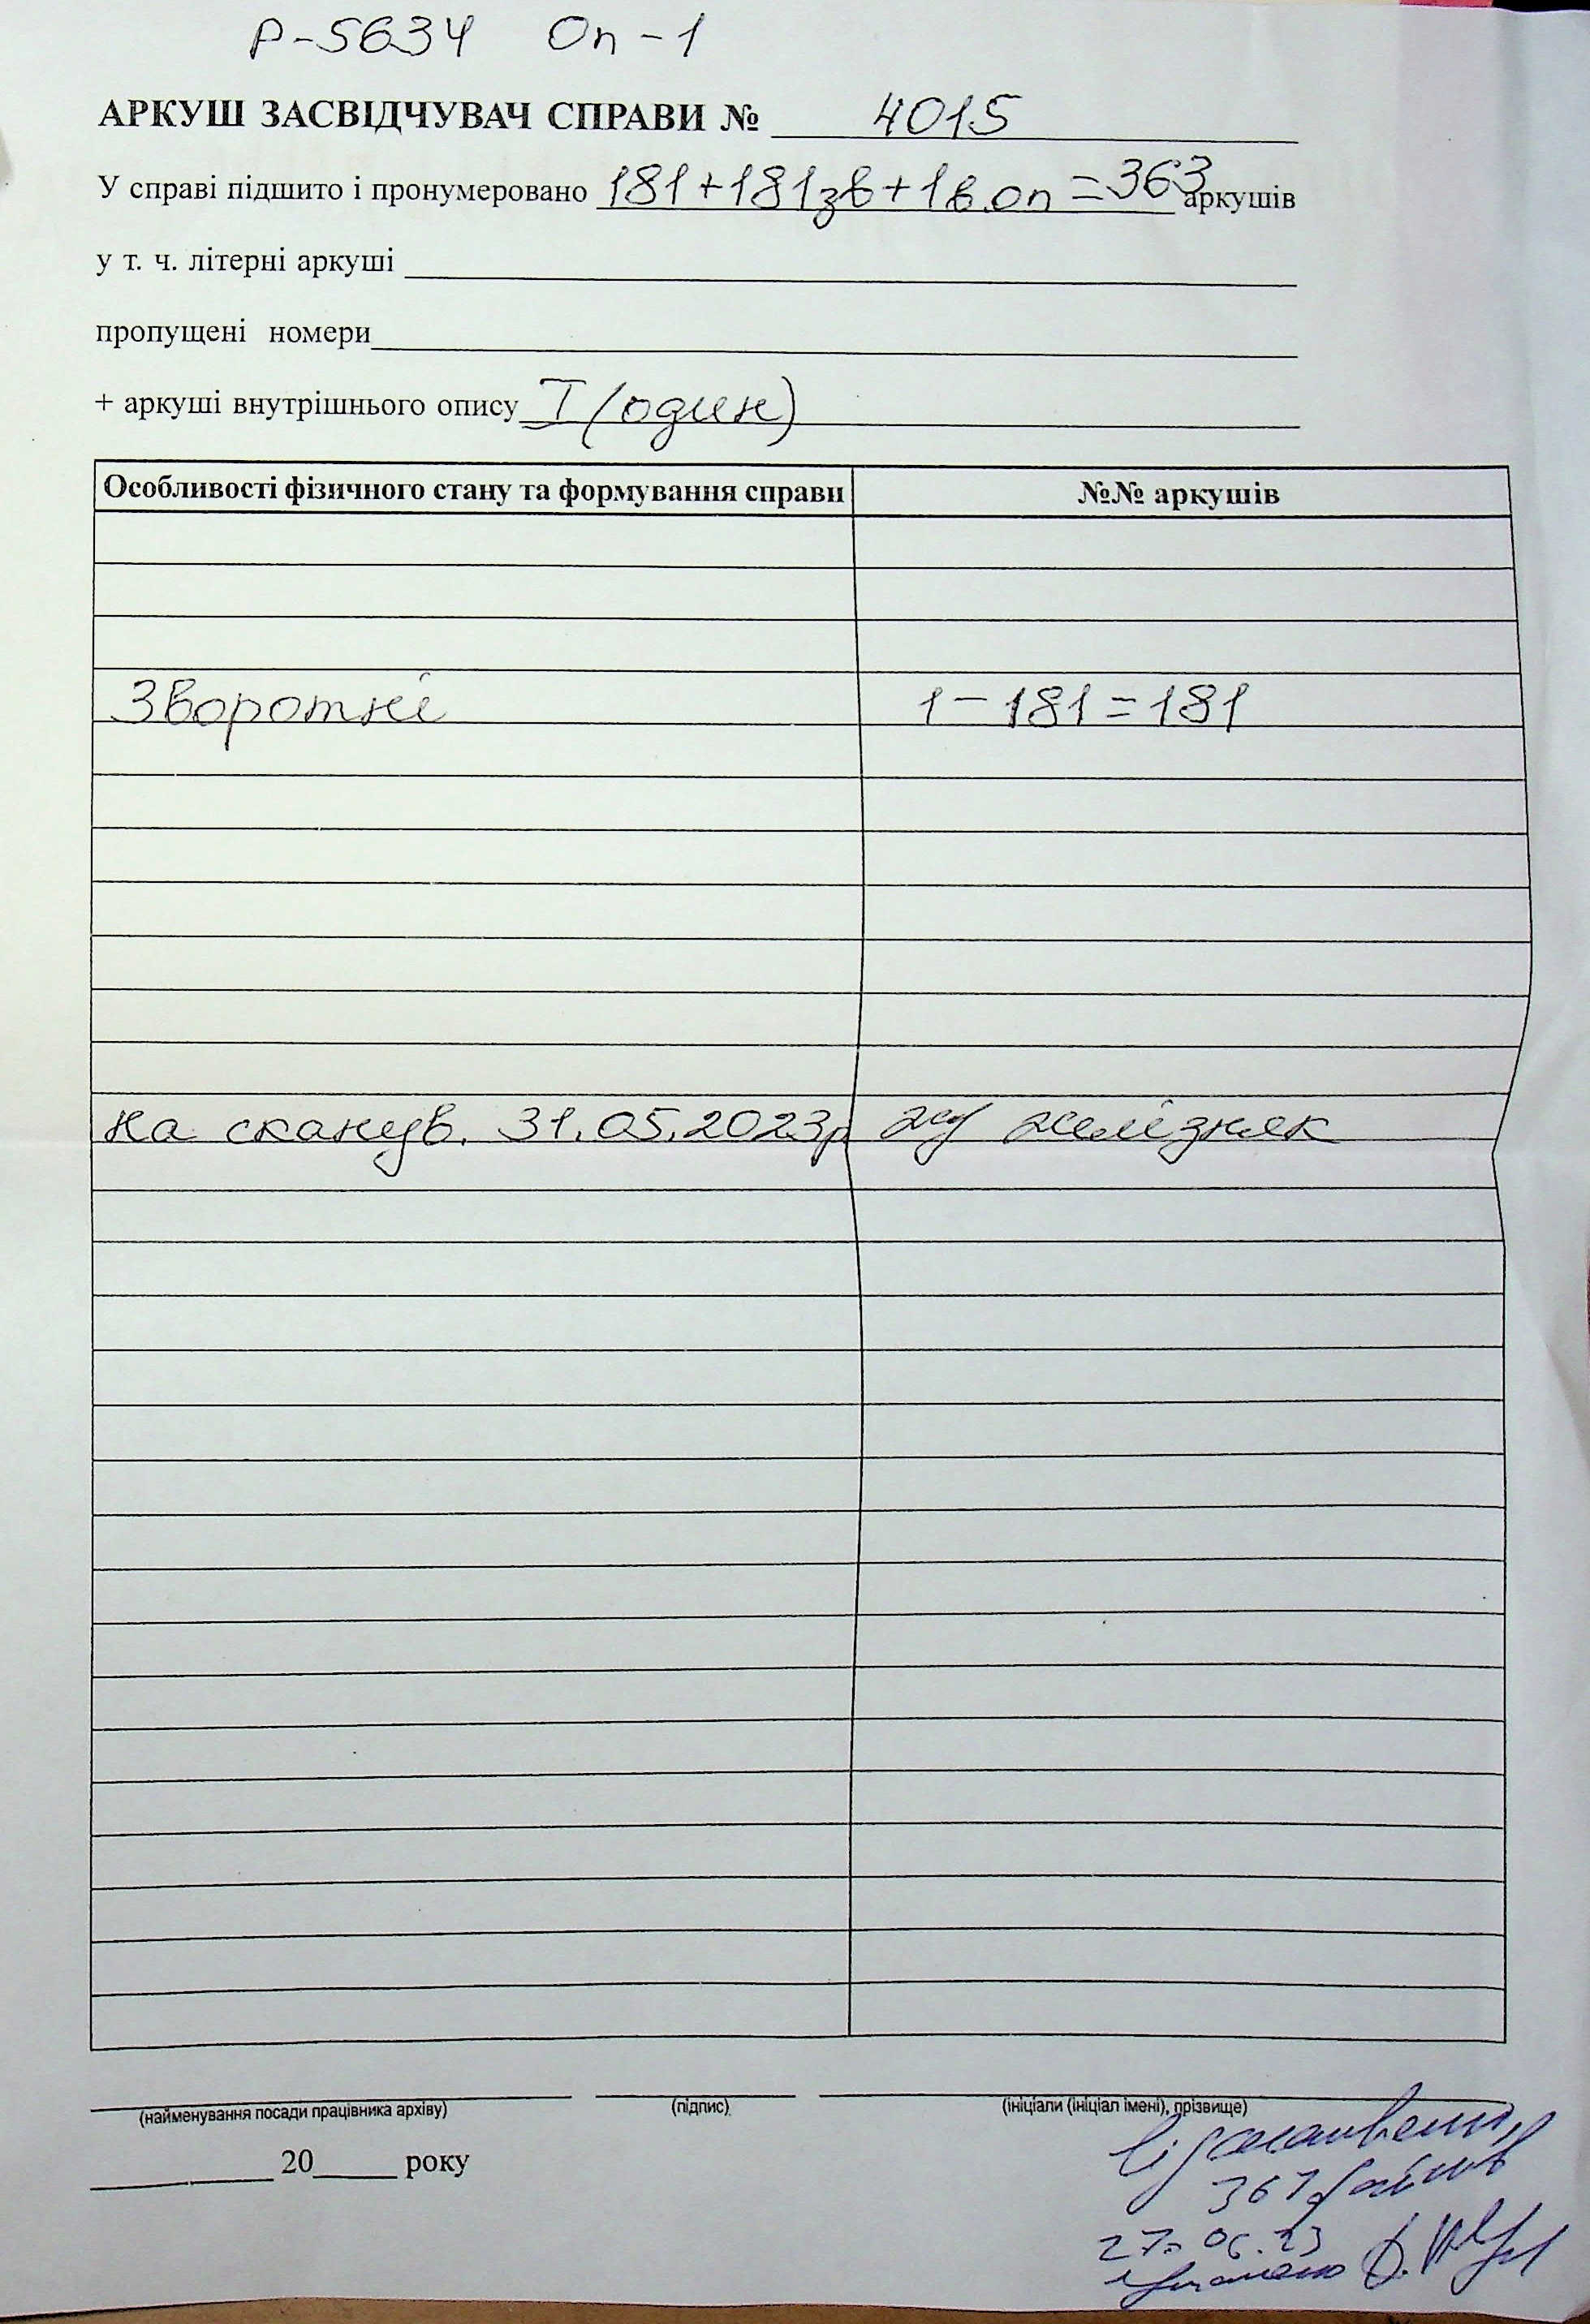 Р-5634 Оп-1
АРКУШ ЗАСВІДЧУВАЧ СПРАВИ № 4015
У справі підшито і пронумеровано 181+181зв+1в.оп=363 аркушів
у т. ч. літерні аркуші
пропущені номери
+ аркуші внутрішнього опису I (один)
Особливості фізичного стану та формування справи №№ аркушів
Зворотні 1-181=181
на сканув. 31.05.2023р Желізняк
(найменування посади працівника архіву) (підпис) (ініціали (ініціал імені), прізвище)
20 року
367 файлів
27.06.23